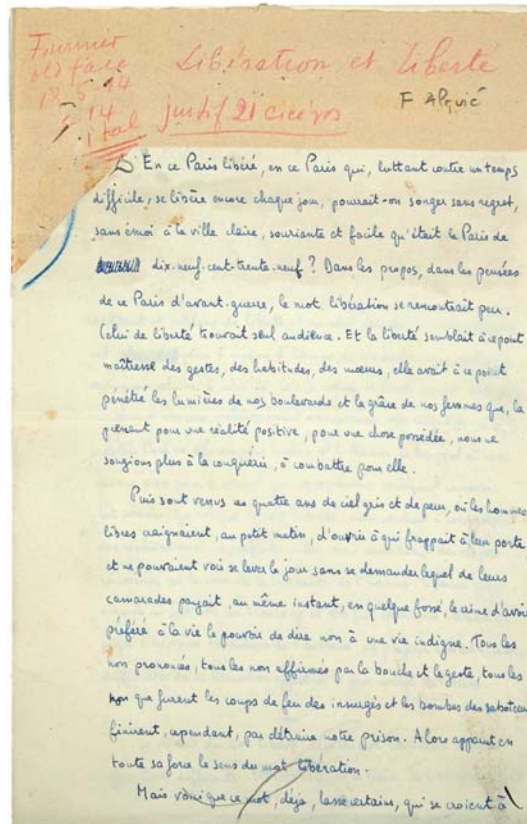 Fournier
old face
Libération et liberté
F Alquié
ital justif 21 cicéros
En ce Paris libéré, en ce Paris qui, luttant contre un temps
difficile, se libère encore chaque jour, pourrait-on songer sans regret,
sans émoi à la ville claire, souriante et facile qu'était le Paris de
dix-neuf-cent-trente-neuf ? Dans les propos, dans les pensées
de ce Paris d'avant-guerre, le mot libération se rencontrait peu.
Celui de liberté trouvait seul audience. Et la liberté semblait à ce point
maîtresse des gestes, des habitudes, des mœurs, elle avait à ce point
pénétré les lumières de nos boulevards et la grâce de nos femmes que, la
prenant pour une réalité positive, pour une chose possédée, nous ne
songions plus à la conquérir, à combattre pour elle.
Puis sont venus ces quatre ans de ciel gris et de peur, où les hommes
libres craignaient, au petit matin, d'ouvrir à qui frappait à leur porte
et ne pouvaient voir se lever le jour sans se demander lequel de leurs
camarades payait, au même instant, en quelque fossé, le crime d'avoir
préféré à la vie le pouvoir de dire non à une vie indigne. Tous les
non prononcés, tous les non affirmés par la bouche et le geste, tous les
non que furent les coups de feu des insurgés et les bombes des saboteurs
finirent, cependant, par détruire notre prison. Alors apparut en
toute sa force le sens du mot libération.
Mais voici que ce mot, déjà, lasse certains, qui se croient à